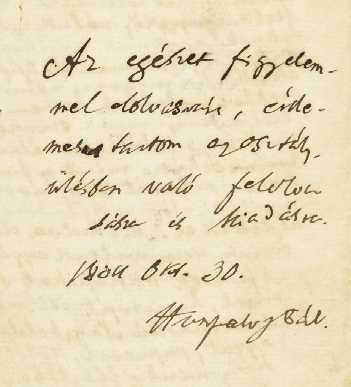 Az egészet figyelem-
mel elolvasván, érde-
mesnek tartom az osztály-
ülésben való felolva
sásra és kiadásra.
Okt. 30.
Hunfalvy Pál.